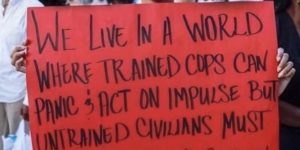 WE LIVE IN A WORLD
WHERE TRAINED COPS CAN
PANIC & ACT ON IMPULSE BUT
UNTRAINED CIVILIANS MUST